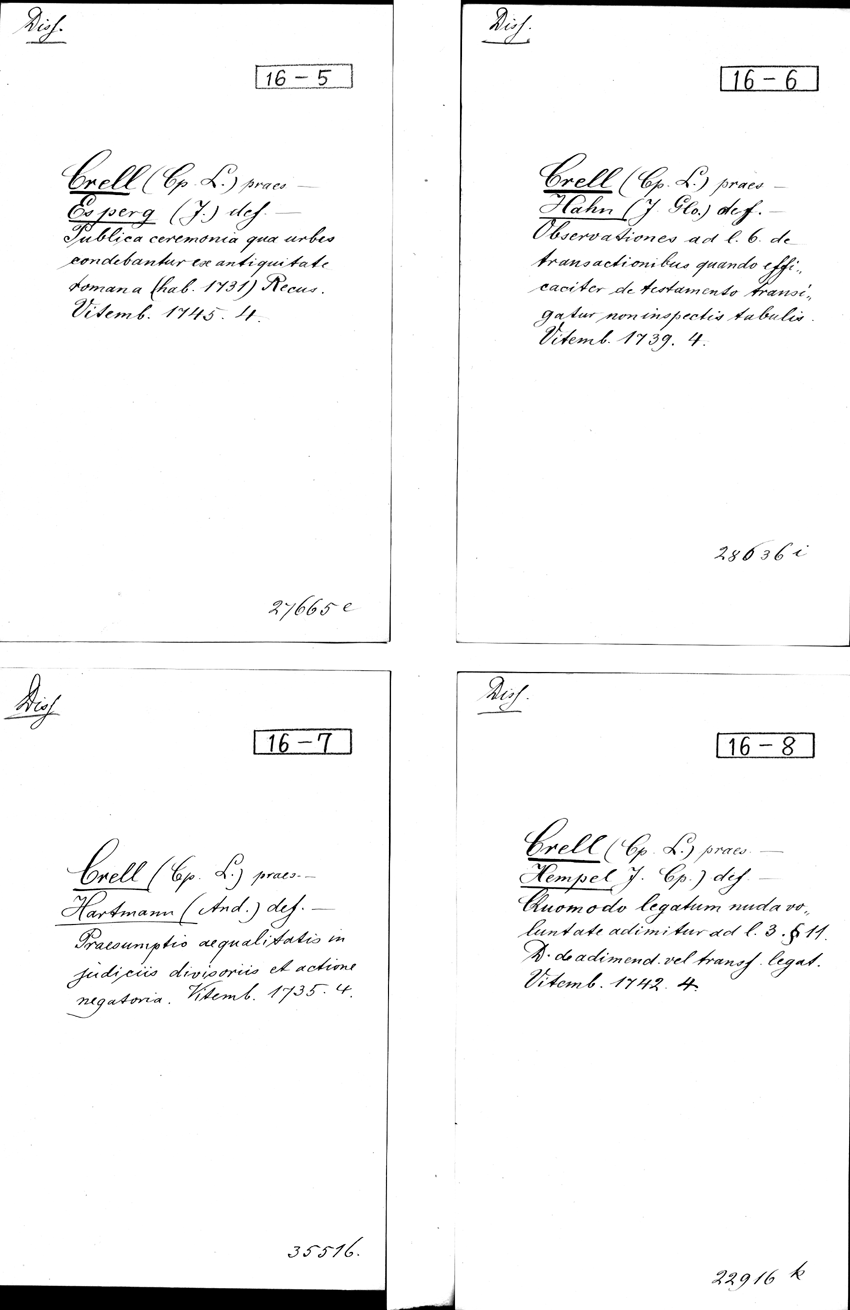 Diss.
16 – 5
Crell (Cp. L.) praes —
Esperg (J.) def. —
Publica ceremonia qua urbes
condebantur ex antiquitate
romana (hab. 1731) Recus.
Vitemb. 1745. 4.
27665 e
Diss.
16 – 6
Crell (Cp. L.) praes —
Hahn (J. Glo.) def. —
Observationes ad l. 6. de
transactionibus quando effi„
caciter de testamento transi„
gatur non inspectis tabulis.
Vitemb. 1739. 4.
28636 i
Diss
16 – 7
Crell (Cp. L.) praes. —
Hartmann (And.) def. —
Praesumptio aequalitatis in
judiciis divisoriis et actione
negatoria. Vitemb. 1735. 4.
35516.
Diss.
16 – 8
Crell (Cp. L.) praes. —
Hempel J. Cp.) def —
Quomodo legatum nuda vo„
luntate adimitur ad l. 3. § 11.
D. de adimend. vel transf. legat.
Vitemb. 1742. 4.
22916 k